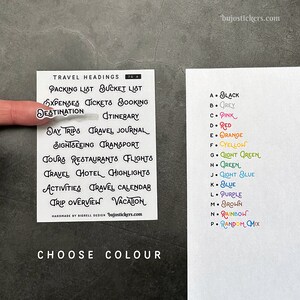 bujostickers.com
TRAVEL HEADINGS
PACKING LIST BUCKET LIST
EXPENSES TICKETS BOOKING
DESTINATION
ITINERARY
DAY TRIPS TRAVEL JOURNAL
SIGHTSEEING TRANSPORT
TOURS RESTAURANTS FLIGHTS
TRAVEL HOTEL HIGHLIGHTS
ACTIVITIES TRAVEL CALENDAR
TRIP OVERVIEW VACATION
HANDMADE BY RIDDELL DESIGN bujostickers.com
A • BLACK
B • GREY
C • PINK
D • RED
E • ORANGE
F • YELLOW
G • LIGHT GREEN
H • GREEN
J • LIGHT BLUE
K • BLUE
L • PURPLE
M • BROWN
N • RAINBOW
P • RANDOM MIX
CHOOSE COLOUR